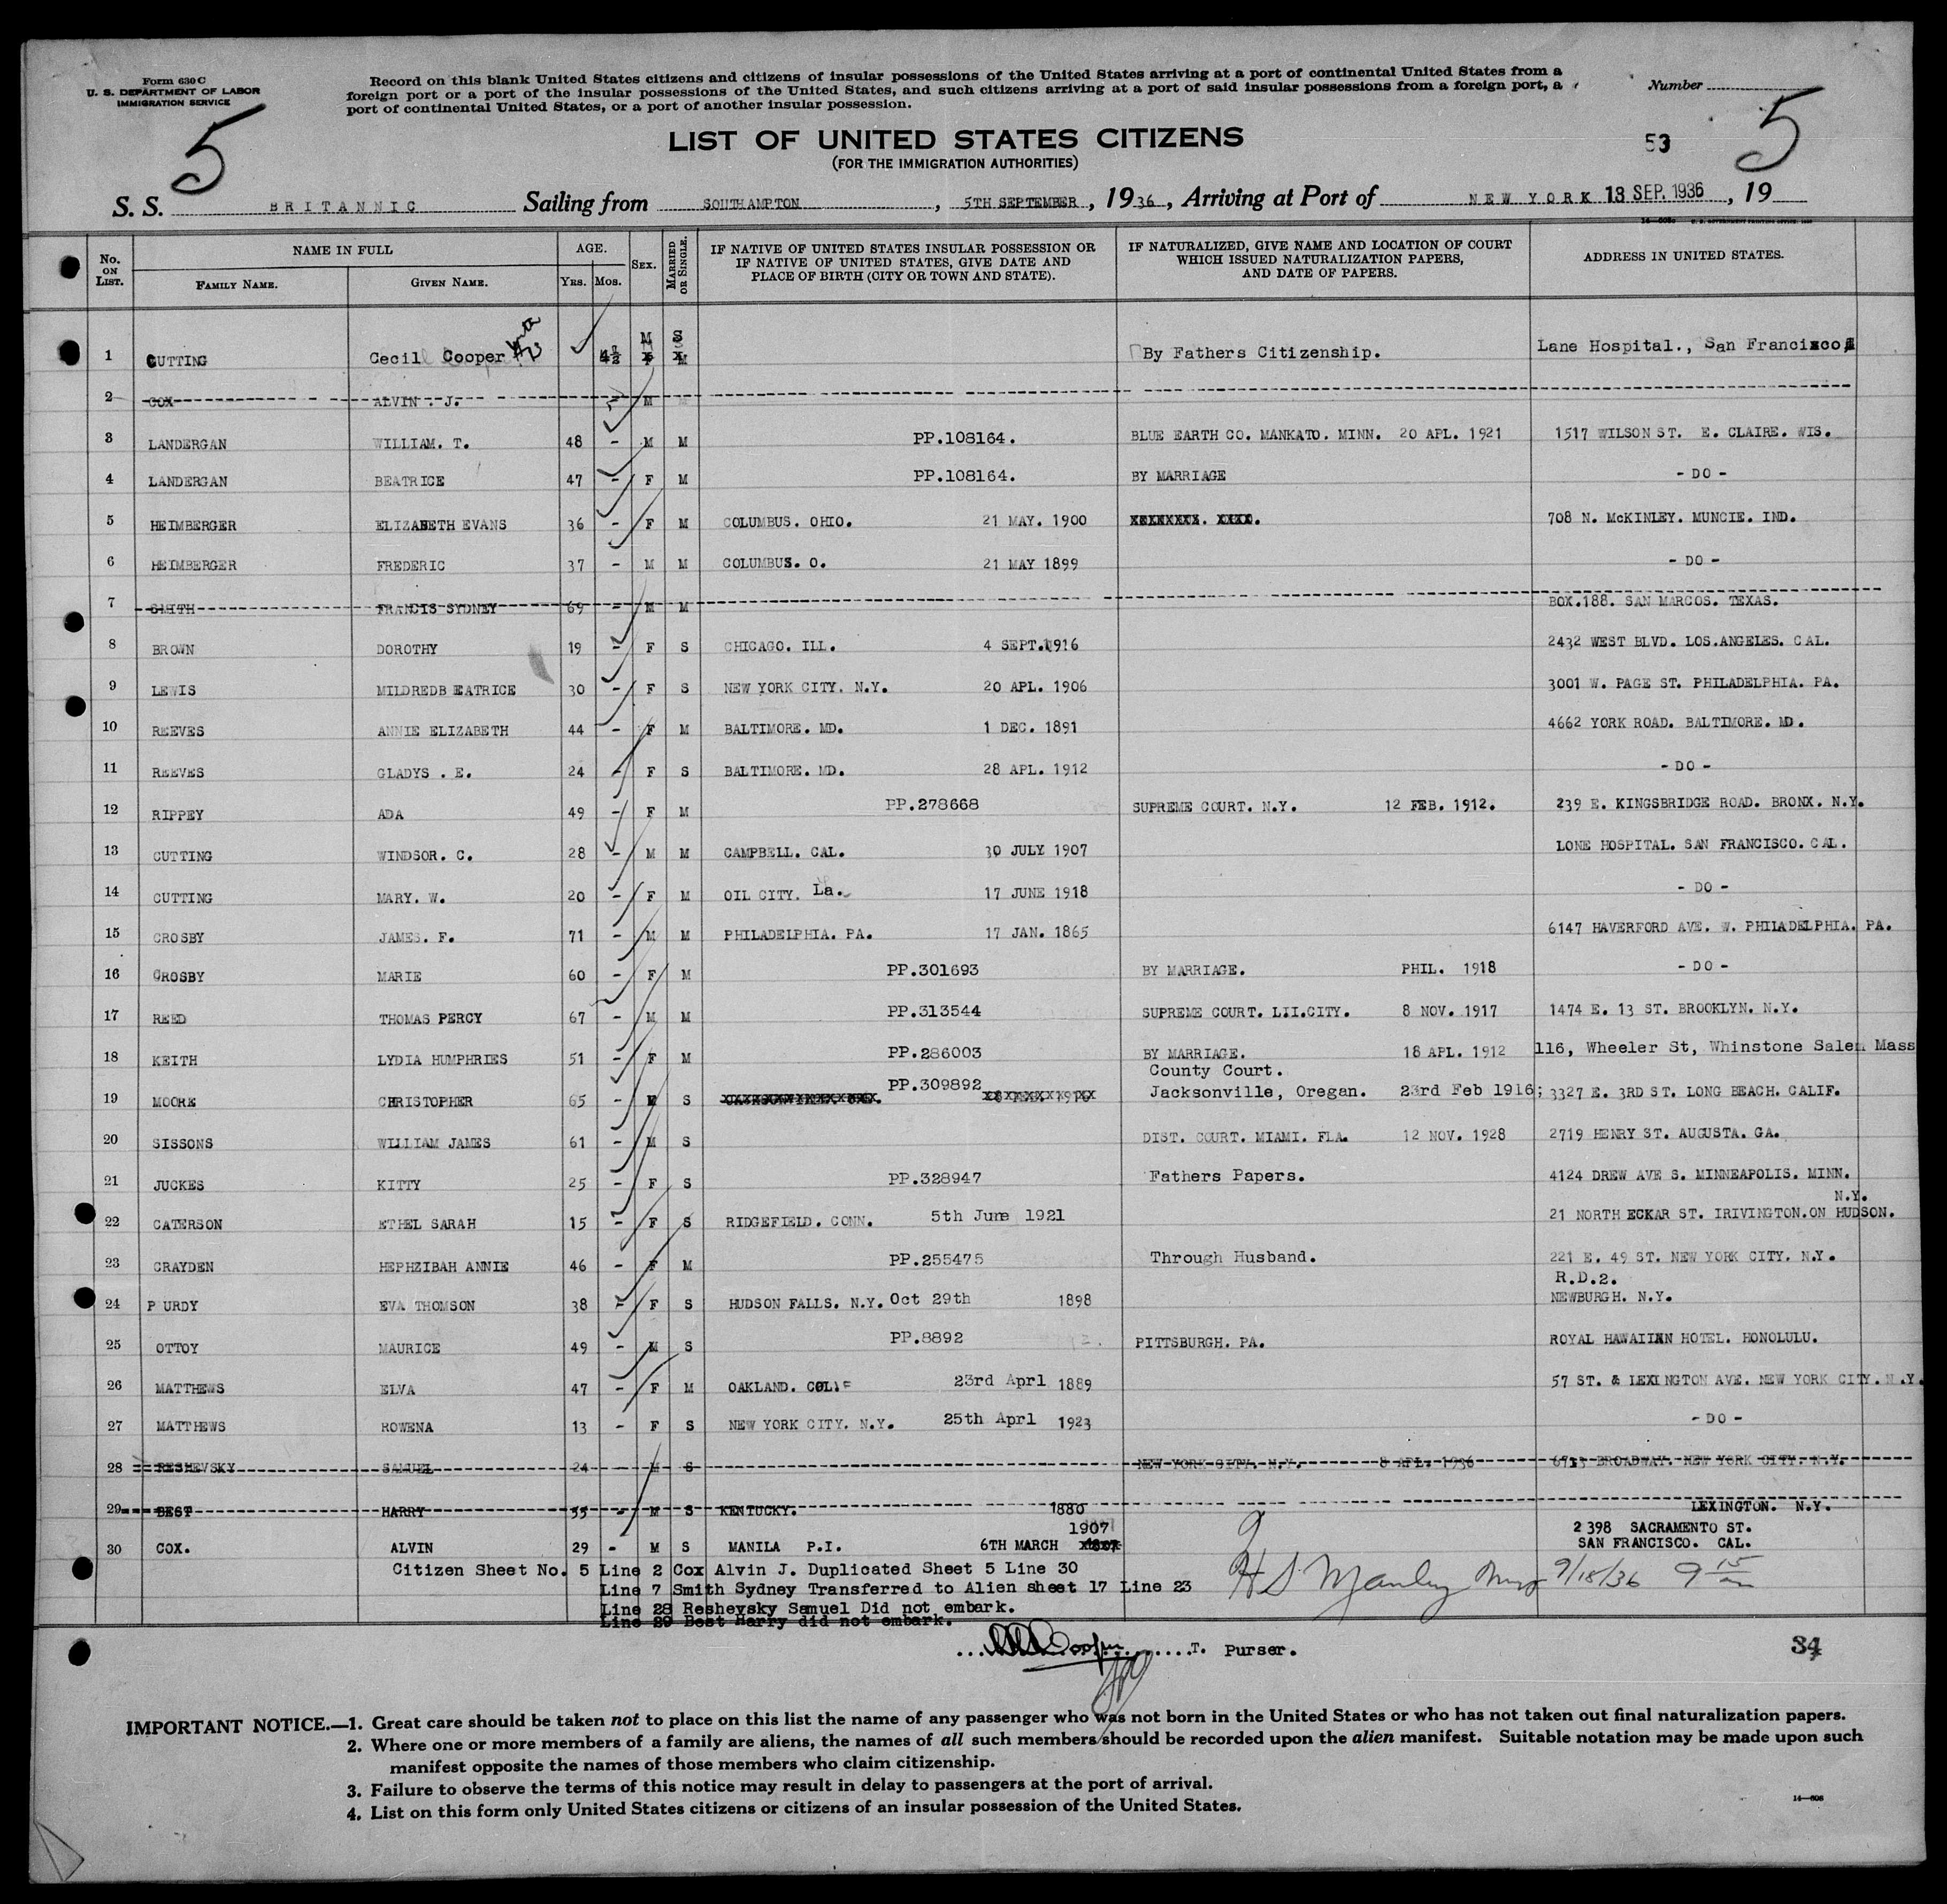 Form 630 C
U. S. DEPARTMENT OF LABOR
IMMIGRATION SERVICE
Record on this blank United States citizens and citizens of insular possessions of the United States arriving at a port of continental United States from a
foreign port or a port of the insular possessions of the United States, and such citizens arriving at a port of said insular possessions from a foreign port, a
port of continental United States, or a port of another insular possession.
Number
5
5
53
LIST OF UNITED STATES CITIZENS
(FOR THE IMMIGRATION AUTHORITIES)
S. S. BRITANNIC Sailing from SOUTHAMPTON, 5TH SEPTEMBER, 1936, Arriving at Port of NEW YORK 13 SEP. 1936, 19
No. ON LIST. NAME IN FULL AGE. SEX. MARRIED OR SINGLE. IF NATIVE OF UNITED STATES INSULAR POSSESSION OR IF NATIVE OF UNITED STATES, GIVE DATE AND PLACE OF BIRTH (CITY OR TOWN AND STATE). IF NATURALIZED, GIVE NAME AND LOCATION OF COURT WHICH ISSUED NATURALIZATION PAPERS, AND DATE OF PAPERS. ADDRESS IN UNITED STATES.
FAMILY NAME. GIVEN NAME. YRS. MOS.
1 CUTTING Cecil Cooper 4½ M S By Fathers Citizenship. Lane Hospital., San Francisco
2 COX ALVIN . J. M
3 LANDERGAN WILLIAM. T. 48 - M M PP.108164. BLUE EARTH CO. MANKATO. MINN. 20 APL. 1921 1517 WILSON ST. E. CLAIRE. WIS.
4 LANDERGAN BEATRICE 47 - F M PP.108164. BY MARRIAGE - DO -
5 HEIMBERGER ELIZABETH EVANS 36 - F M COLUMBUS. OHIO. 21 MAY. 1900 708 N. McKINLEY. MUNCIE. IND.
6 HEIMBERGER FREDERIC 37 - M M COLUMBUS. O. 21 MAY 1899 - DO -
7 SMITH FRANCIS SYDNEY 69 - M M BOX.188. SAN MARCOS. TEXAS.
8 BROWN DOROTHY 19 - F S CHICAGO. ILL. 4 SEPT.1916 2432 WEST BLVD. LOS.ANGELES. CAL.
9 LEWIS MILDREDB EATRICE 30 - F S NEW YORK CITY. N.Y. 20 APL. 1906 3001 W. PAGE ST. PHILADELPHIA. PA.
10 REEVES ANNIE ELIZABETH 44 - F M BALTIMORE. MD. 1 DEC. 1891 4662 YORK ROAD. BALTIMORE. MD.
11 REEVES GLADYS . E. 24 - F S BALTIMORE. MD. 28 APL. 1912 - DO -
12 RIPPEY ADA 49 - F M PP.278668 SUPREME COURT. N.Y. 12 FEB. 1912. 239 E. KINGSBRIDGE ROAD. BRONX. N.Y.
13 CUTTING WINDSOR. C. 28 - M M CAMPBELL. CAL. 30 JULY 1907 LONE HOSPITAL. SAN FRANCISCO. CAL.
14 CUTTING MARY. W. 20 - F M OIL CITY. La. 17 JUNE 1918 - DO -
15 CROSBY JAMES. F. 71 - M M PHILADELPHIA. PA. 17 JAN. 1865 6147 HAVERFORD AVE. W. PHILADELPHIA. PA.
16 CROSBY MARIE 60 - F M PP.301693 BY MARRIAGE. PHIL. 1918 - DO -
17 REED THOMAS PERCY 67 - M M PP.313544 SUPREME COURT. LII.CITY. 8 NOV. 1917 1474 E. 13 ST. BROOKLYN. N.Y.
18 KEITH LYDIA HUMPHRIES 51 - F M PP.286003 BY MARRIAGE. 18 APL. 1912 116, Wheeler St, Whinstone Salem Mass
County Court.
19 MOORE CHRISTOPHER 65 - M S PP.309892 Jacksonville, Oregan. 23rd Feb 1916; 3327 E. 3RD ST. LONG BEACH. CALIF.
20 SISSONS WILLIAM JAMES 61 - M S DIST. COURT. MIAMI. FLA. 12 NOV. 1928 2719 HENRY ST. AUGUSTA. GA.
21 JUCKES KITTY 25 - F S PP.328947 Fathers Papers. 4124 DREW AVE S. MINNEAPOLIS. MINN.
N.Y.
22 CATERSON ETHEL SARAH 15 - F S RIDGEFIELD. CONN. 5th June 1921 21 NORTH ECKAR ST. IRIVINGTON.ON HUDSON.
23 CRAYDEN HEPHZIBAH ANNIE 46 - F M PP.255475 Through Husband. 221 E. 49 ST. NEW YORK CITY. N.Y.
R.D.2.
24 P URDY EVA THOMSON 38 - F S HUDSON FALLS. N.Y. Oct 29th 1898 NEWBURGH. N.Y.
25 OTTOY MAURICE 49 - M S PP.8892 PITTSBURGH. PA. ROYAL HAWAIIAN HOTEL. HONOLULU.
26 MATTHEWS ELVA 47 - F M OAKLAND. 23rd Aprl 1889 57 ST. & LEXINGTON AVE. NEW YORK CITY. N.Y.
27 MATTHEWS ROWENA 13 - F S NEW YORK CITY. N.Y. 25th Aprl 1923 - DO -
28 RESHEVSKY SAMUEL 24 - M S NEW YORK CITY. N.Y. 8 APL. 1936 6713 BROADWAY. NEW YORK CITY. N.Y.
29 BEST HARRY 55 - M S KENTUCKY. 1880 LEXINGTON. N.Y.
1907 2398 SACRAMENTO ST.
30 COX. ALVIN 29 - M S MANILA P.I. 6TH MARCH SAN FRANCISCO. CAL.
Citizen Sheet No. 5 Line 2 Cox Alvin J. Duplicated Sheet 5 Line 30
Line 7 Smith Sydney Transferred to Alien sheet 17 Line 23
Line 28 Reshevsky Samuel Did not embark.
Line 29 Best Harry did not embark.
H S Manley 9/18/36 9 15
T. Purser.
34
IMPORTANT NOTICE.—1. Great care should be taken not to place on this list the name of any passenger who was not born in the United States or who has not taken out final naturalization papers.
2. Where one or more members of a family are aliens, the names of all such members should be recorded upon the alien manifest. Suitable notation may be made upon such
manifest opposite the names of those members who claim citizenship.
3. Failure to observe the terms of this notice may result in delay to passengers at the port of arrival.
4. List on this form only United States citizens or citizens of an insular possession of the United States.
14—608